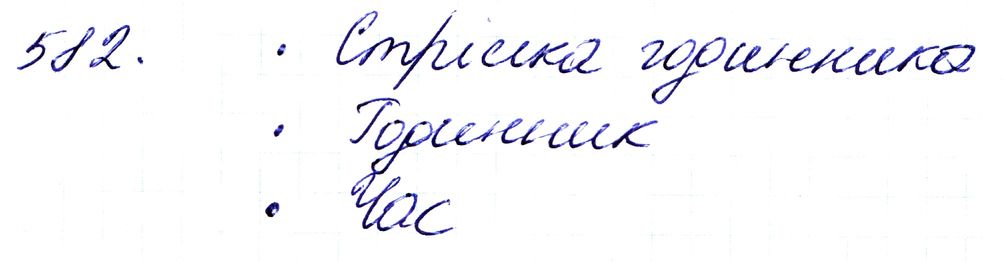 582. · Стрілка годинника
· Годинник
· Час